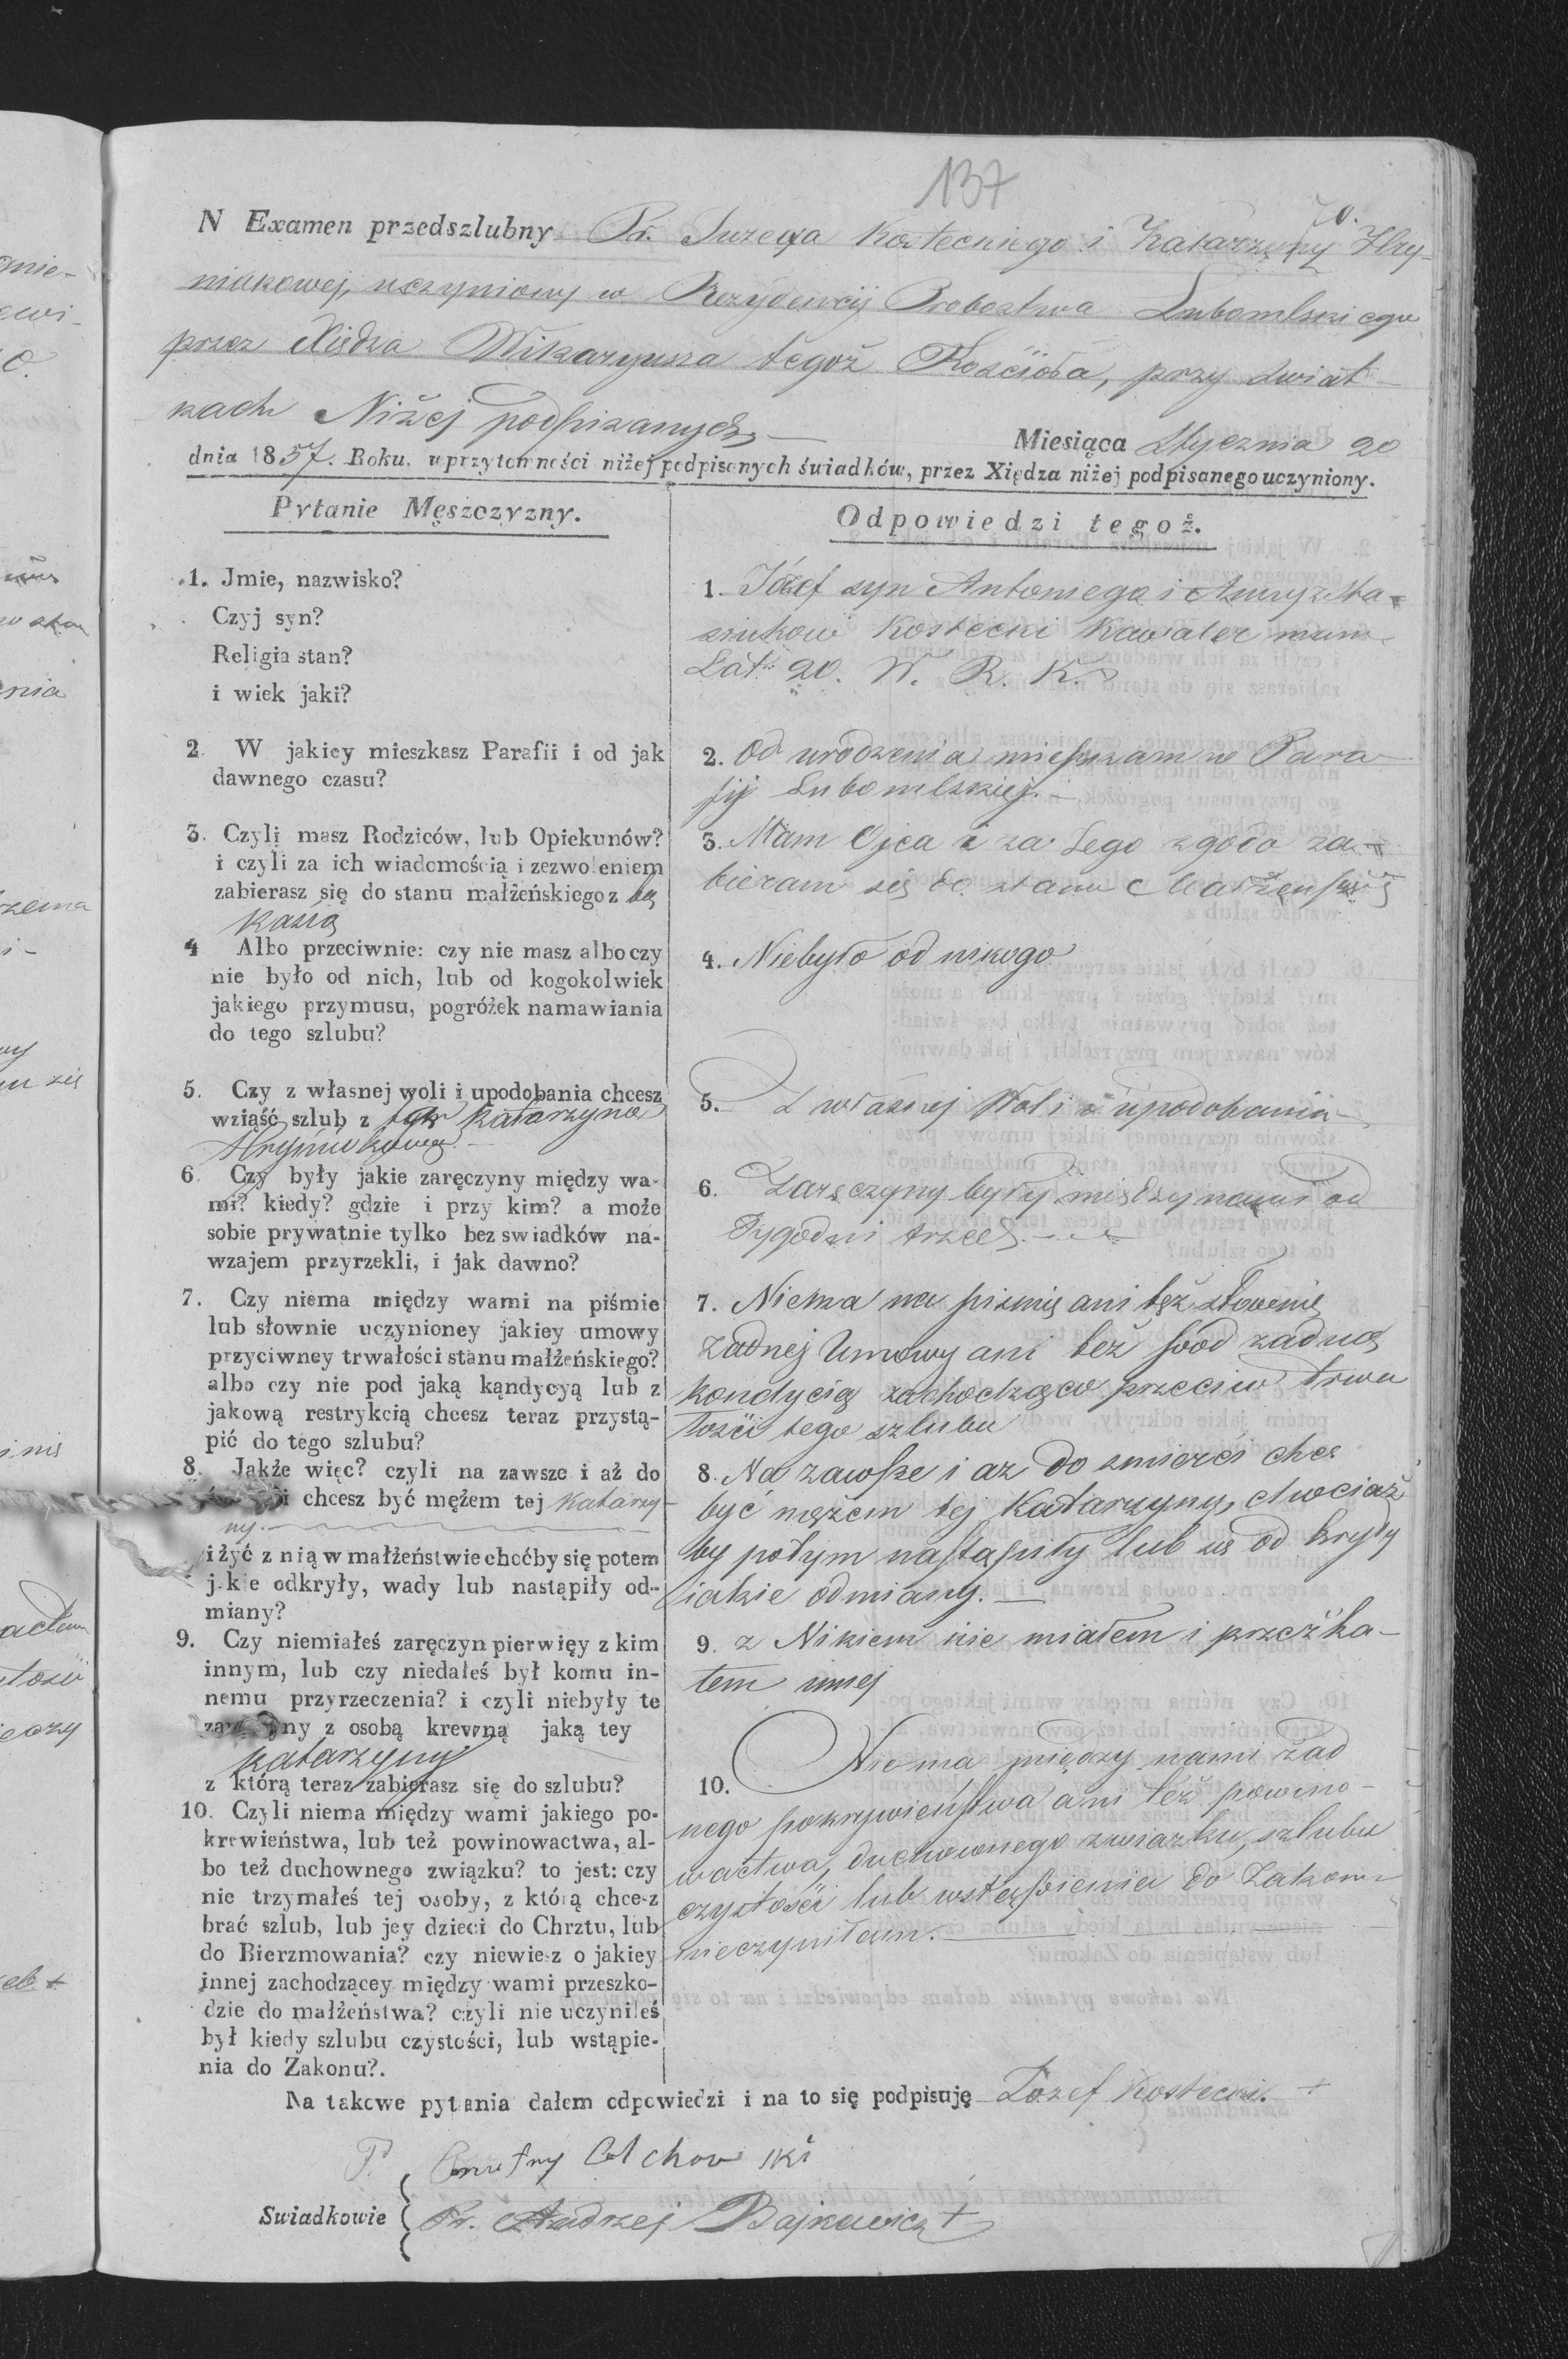 137
70.
N Examen przedszlubny Pr. Juzefa Kosteckiego i Katarzyny Hry-
niukowej, uczyniony w Rezydencij Probostwa Lubomlskiego
przez Xiędza Wikaryusza tegoż Kościoła, przy świat-
kach Niżej podpisanych
Miesiąca Stycznia 20
dnia 1857. Roku. w przytomności niżej podpisanych świadków, przez Xiędza niżej podpisanego uczyniony.
Pytanie Męszczyzny.
Odpowiedzi tegoż.
1. Jmie, nazwisko?
Czyj syn?
Religia stan?
i wiek jaki?
1. Józef syn Antoniego i
Kostecki Kawaler mam
Lat 20. W. R. K.
2. W jakiey mieszkasz Parafii i od jak
dawnego czasu?
2. Od urodzenia mieszkam w Para
fij Lubomlskiej. –
3. Czyli masz Rodziców, lub Opiekunów?
i czyli za ich wiadomością i zezwoleniem
zabierasz się do stanu małżeńskiego z tą
Kasią
3. Mam Ojca i za Jego zgodo za-
bieram się do stanu
4 Albo przeciwnie: czy nie masz albo czy
nie było od nich, lub od kogokolwiek
jakiego przymusu, pogróżek namawiania
do tego szlubu?
4. Niebyło od nikogo
5. Czy z własnej woli i upodobania chcesz
wziąść szlub z tą Katarzyną
Hryniukową –
5. Z własnej Woli i upodobania
6. Czy były jakie zaręczyny między wa-
mi? kiedy? gdzie i przy kim? a może
sobie prywatnie tylko bez swiadków na-
wzajem przyrzekli, i jak dawno?
6. Zaręczyny były między nami od
Tygodni trzech. –
7. Czy niema między wami na piśmie
lub słownie uczynioney jakiey umowy
przyciwney trwałości stanu małżeńskiego?
albo czy nie pod jaką kąndycyą lub z
jakową restrykcią chcesz teraz przystą-
pić do tego szlubu?
7. Niema na pismię ani też słownię
żadnej Umowy ani też pod żadną
kondycią zachodząco przeciw trwa
łości tego szlubu
8. Jakże więc? czyli na zawsze i aż do
chcesz być mężem tej Katarzy-
ny. –
i żyć z nią w małżeństwie choćby się potem
j.kie odkryły, wady lub nastąpiły od-
miany?
8. Na zawsze i aż do smierci chcę
być mężem tej Katarzyny, chociaż
by potym nastąpiły lub się od kryły
jakie odmiany. –
9. Czy niemiałeś zaręczyn pierwięy z kim
innym, lub czy niedałeś był komu in-
nemu przyrzeczenia? i czyli niebyły te
z osobą krewną jaką tey
Katarzyny
z którą teraz zabierasz się do szlubu?
9. z Nikiem nie miałem i
10. Czyli niema między wami jakiego po-
krewieństwa, lub też powinowactwa, al-
bo też duchownego związku? to jest: czy
nie trzymałeś tej osoby, z którą chcesz
brać szlub, lub jey dzieci do Chrztu, lub
do Bierzmowania? czy niewiesz o jakiey
innej zachodzącey między wami przeszko-
dzie do małżeństwa? czyli nie uczyniłeś
był kiedy szlubu czystości, lub wstąpie-
nia do Zakonu?.
10. Niema między nami żad
nego pokrywieństwa ani też powino-
wactwa, duchownego związku, szlubu
czystości lub wstąpienia do Zakonu
nieczyniłem. –
Na takowe pytania dałem odpowiedzi i na to się podpisuję Józef Kostecki. +
Swiadkowie
Pr. Andrzej Bajkiewicz +